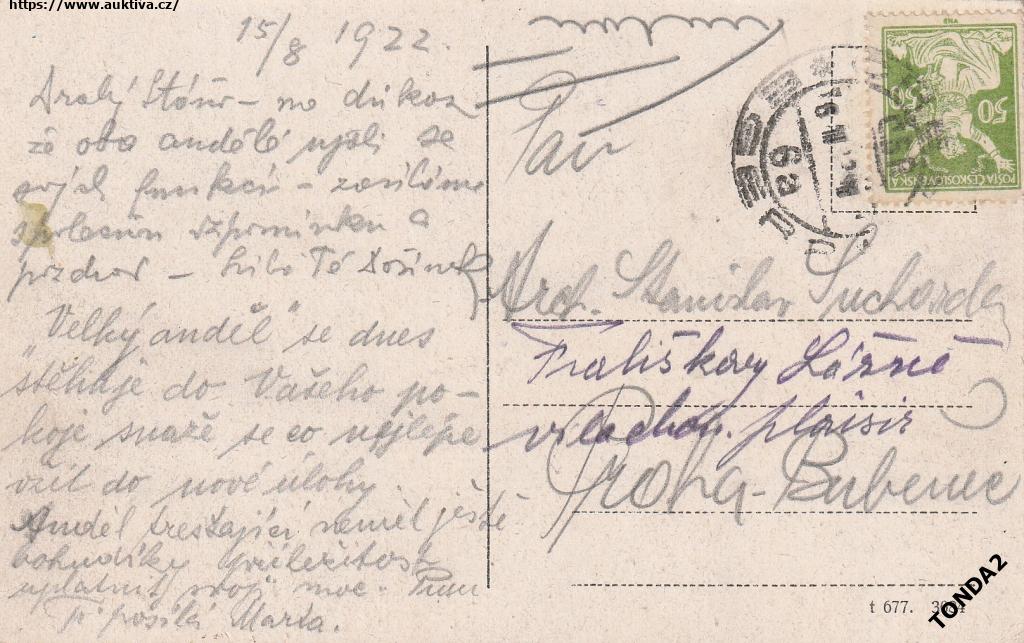 https://www.auktiva.cz/
15/8 1922.
Drahý Stáňo – na důkaz
že oba andělé ujali se
svých funkcí – zasíláme
společnou vzpomínku a
pozdrav –
„Velký anděl" se dnes
stěhuje do Vašeho po-
koje snaže se co nejlépe
vžít do nové úlohy.
Anděl trestající neměl ještě
bohudíky příležitost
uplatnit svoji moc.
Ti posílá Maria.
Pan
Prof. Stanislav Sucharda
Františkovy Lázně
vila
Praha - Bubeneč
50
50
POŠTA ČESKOSLOVENSKÁ
6a
t 677.
TONDA2